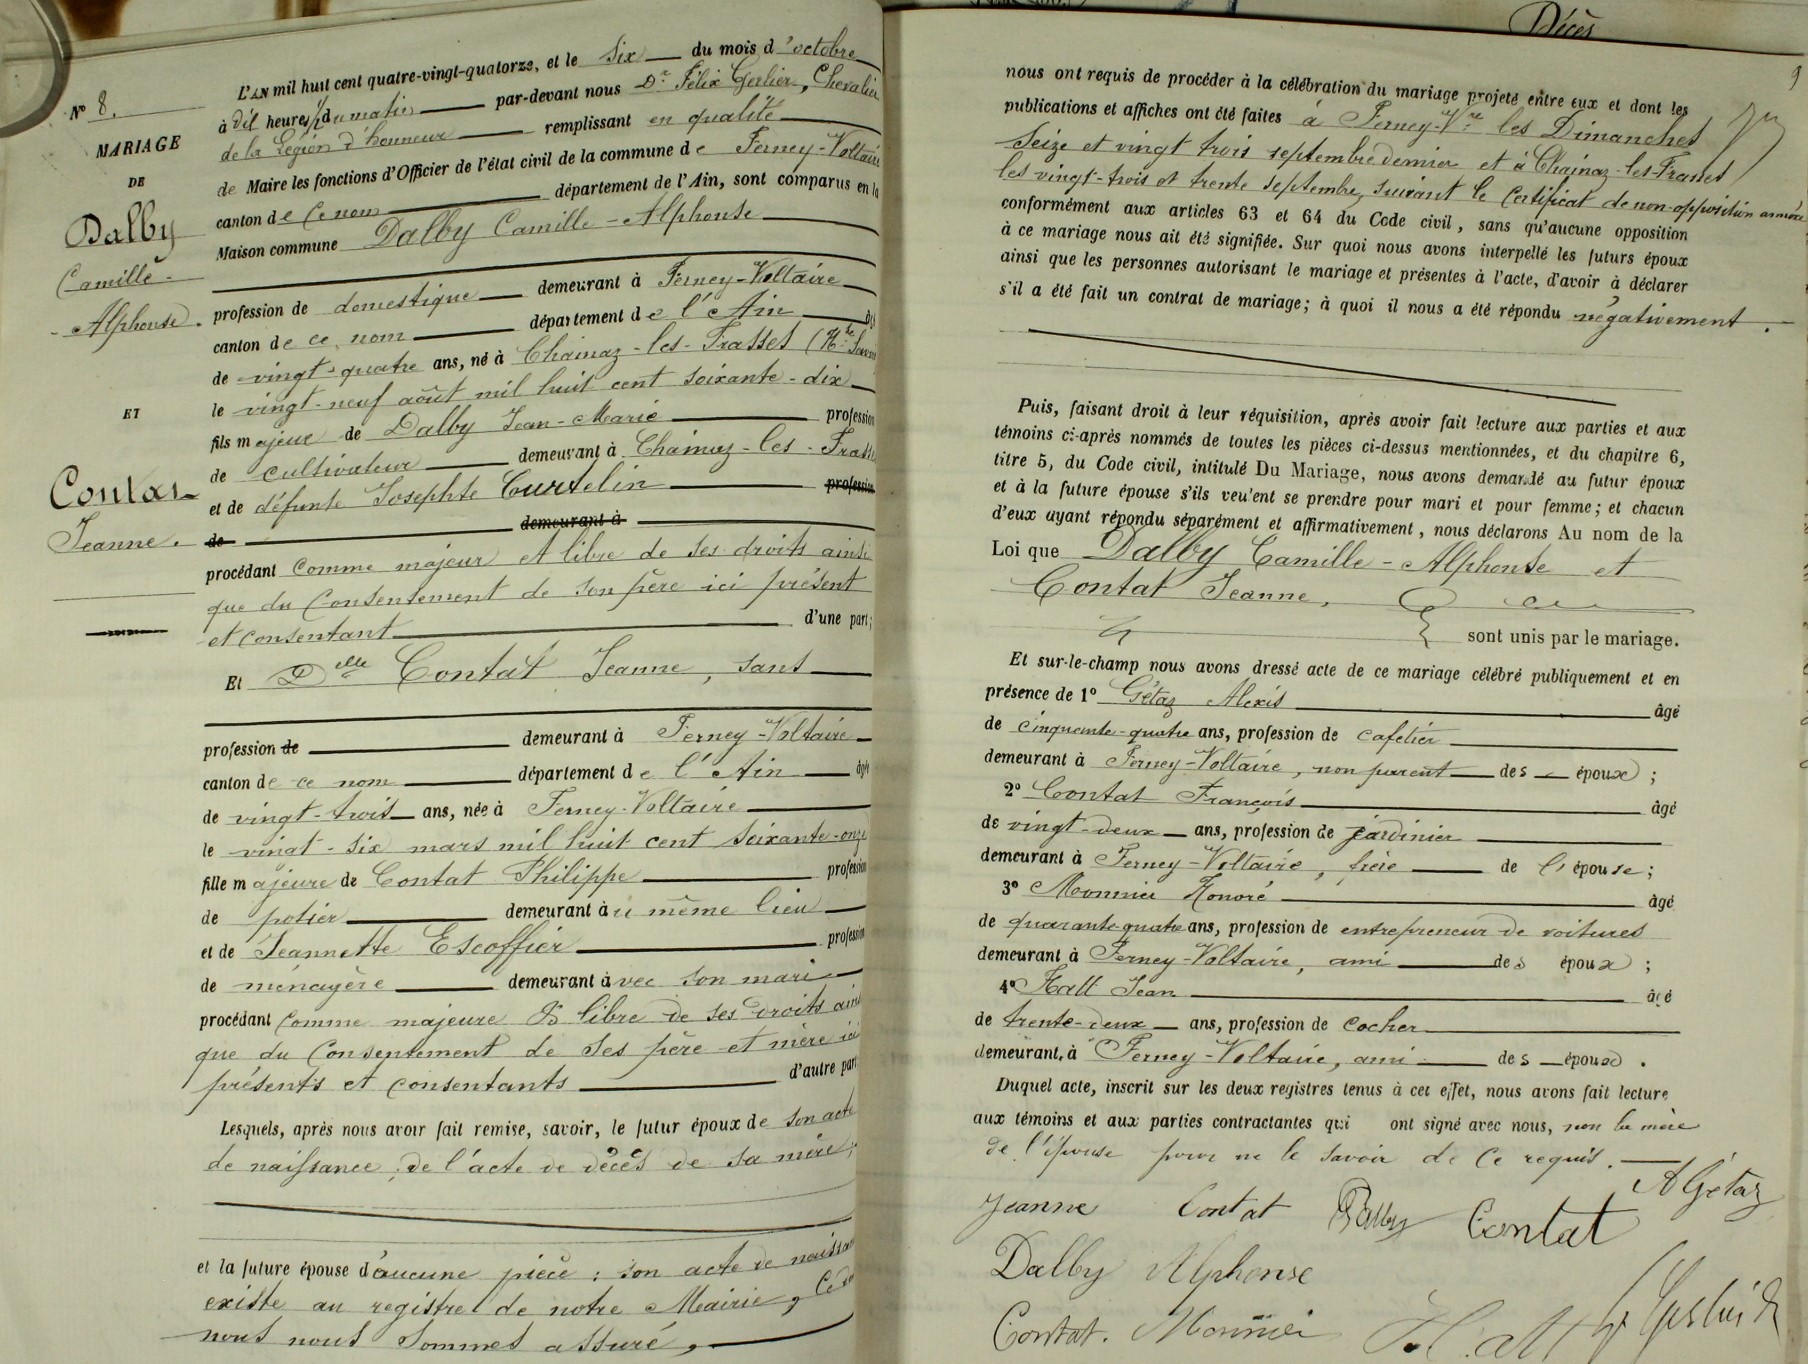 N° 8.
MARIAGE
DE
Dalby
Camille-
Alphonse.
ET
Contat
Jeanne.
L'AN mil huit cent quatre-vingt-quatorze, et le six du mois d'octobre
à dix heures du matin par-devant nous Dr Félix Gerlier, Chevalier
de la Légion d'honneur remplissant en qualité
de Maire les fonctions d'Officier de l'état civil de la commune de Ferney-Voltaire
canton de ce nom département de l'Ain, sont comparus en la
Maison commune Dalby Camille-Alphonse
profession de domestique demeurant à Ferney-Voltaire
canton de ce nom département de l'Ain âgé
de vingt-quatre ans, né à Chainaz-les-Frasses (Hte Savoie
le vingt-neuf août mil huit cent soixante-dix
fils majeur de Dalby Jean-Marie profession
de cultivateur demeurant à Chainaz-les-Frasses
et de défunte Josephte Curtelin profession
de demeurant à
procédant comme majeur et libre de ses droits ainsi
que du consentement de son père ici présent
et consentant d'une part;
Et Delle Contat Jeanne, sans
profession de demeurant à Ferney-Voltaire
canton de ce nom département de l'Ain âgée
de vingt-trois ans, née à Ferney-Voltaire
le vingt-six mars mil huit cent soixante-onze
fille majeure de Contat Philippe profession
de potier demeurant au même lieu
et de Jeannette Escoffier profession
de ménagère demeurant avec son mari
procédant comme majeure & libre de ses droits ainsi
que du consentement de ses père et mère ici
présents et consentants d'autre part
Lesquels, après nous avoir fait remise, savoir, le futur époux de son acte
de naissance; de l'acte de décès de sa mère;
et la future épouse d'aucune pièce: son acte de naissance
existe au registre de notre Mairie, ce dont
nous nous sommes assuré,
Décès
9
nous ont requis de procéder à la célébration du mariage projeté entre eux et dont les
publications et affiches ont été faites à Ferney-Vre les Dimanches
seize et vingt trois septembre dernier et à Chainaz-les-Frasses
les vingt-trois et trente septembre, suivant le certificat de non-opposition annexé
conformément aux articles 63 et 64 du Code civil, sans qu'aucune opposition
à ce mariage nous ait été signifiée. Sur quoi nous avons interpellé les futurs époux
ainsi que les personnes autorisant le mariage et présentes à l'acte, d'avoir à déclarer
s'il a été fait un contrat de mariage; à quoi il nous a été répondu négativement.
Puis, faisant droit à leur réquisition, après avoir fait lecture aux parties et aux
témoins ci-après nommés de toutes les pièces ci-dessus mentionnées, et du chapitre 6,
titre 5, du Code civil, intitulé Du Mariage, nous avons demandé au futur époux
et à la future épouse s'ils veulent se prendre pour mari et pour femme; et chacun
d'eux ayant répondu séparément et affirmativement, nous déclarons Au nom de la
Loi que Dalby Camille-Alphonse et
Contat Jeanne,
sont unis par le mariage.
Et sur-le-champ nous avons dressé acte de ce mariage célébré publiquement et en
présence de 1° Gétaz Alexis âgé
de cinquante-quatre ans, profession de cafetier
demeurant à Ferney-Voltaire, non parent des époux;
2° Contat François âgé
de vingt-deux ans, profession de jardinier
demeurant à Ferney-Voltaire, frère de l'épouse;
3° Monnier Honoré âgé
de quarante-quatre ans, profession de entrepreneur de voitures
demeurant à Ferney-Voltaire, ami des époux;
4° Hatt Jean âgé
de trente-deux ans, profession de cocher
demeurant à Ferney-Voltaire, ami des époux.
Duquel acte, inscrit sur les deux registres tenus à cet effet, nous avons fait lecture
aux témoins et aux parties contractantes qui ont signé avec nous, non la mère
de l'épouse pour ne le savoir de ce requis.
AGétaz
Jeanne Contat Dalby Contat
Dalby Alphonse
Contat. Monnier